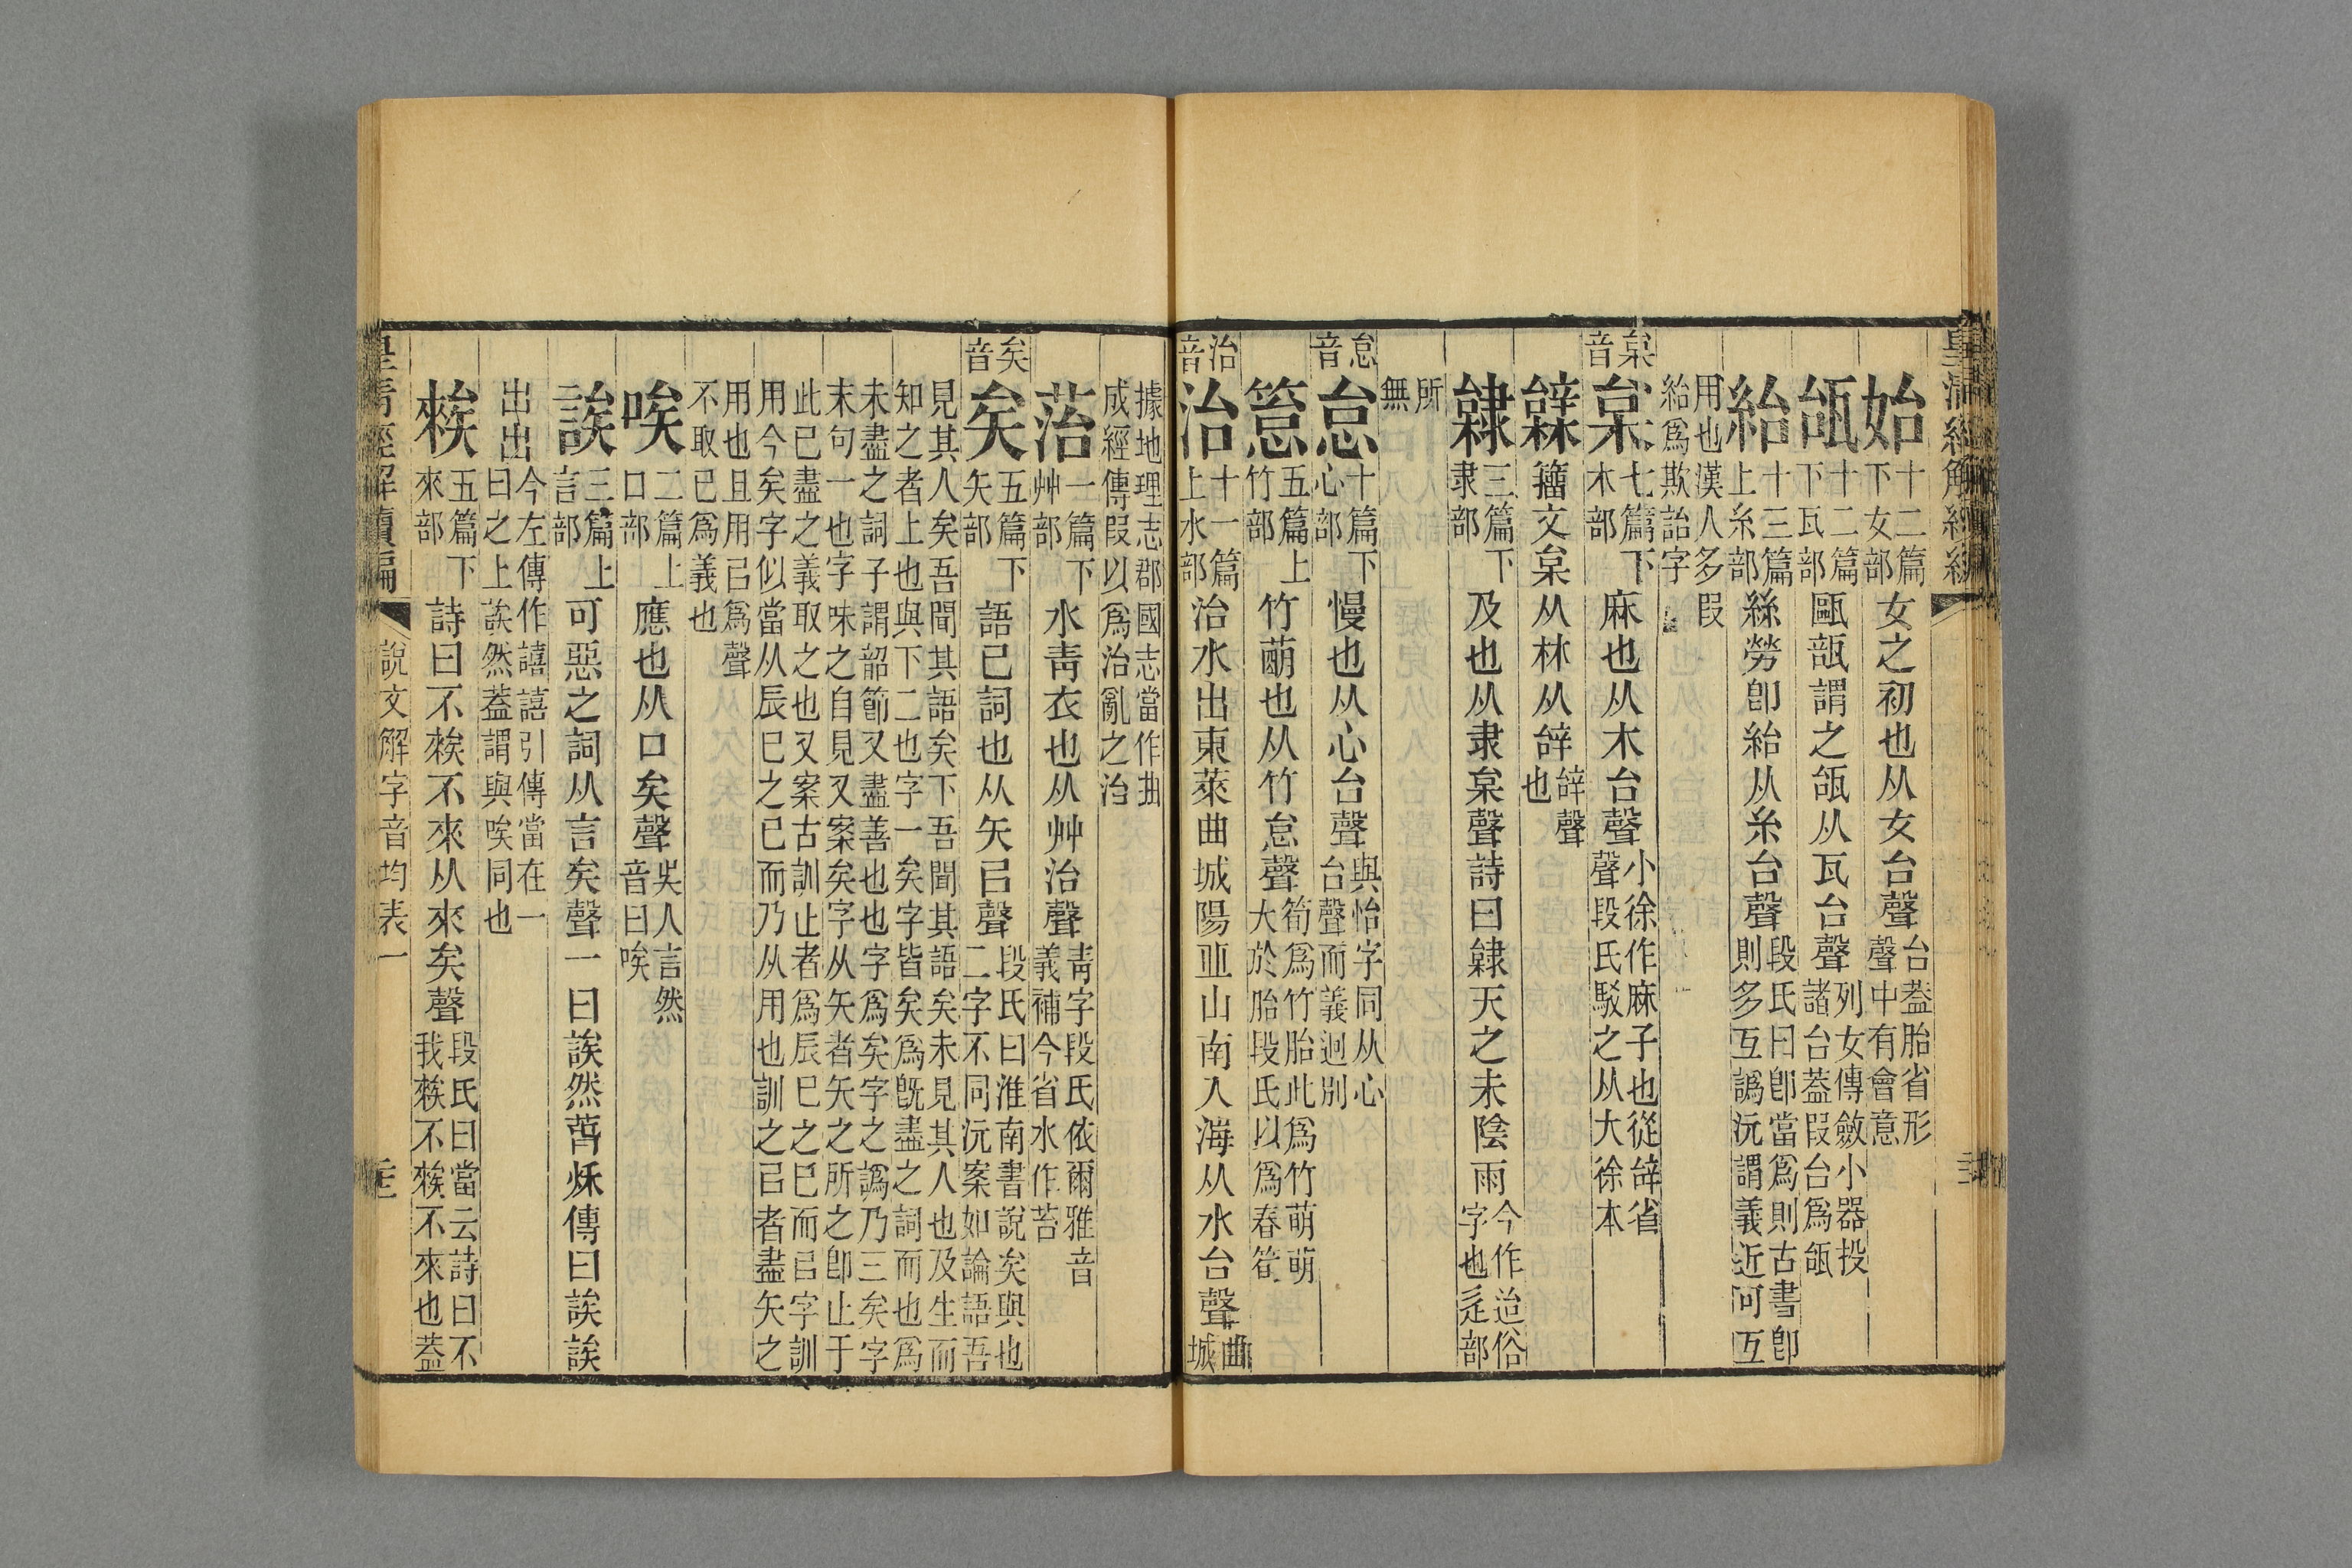 始十二篇下女部女之初也从女台聲台葢胎省形聲中有會意
瓵十二篇下瓦部甌瓿謂之瓵从瓦台聲列女傳斂小器投諸台葢叚台爲瓵
紿十三篇上糸部絲勞卽紿从糸台聲段氏曰卽當爲則古書卽則多互譌沅謂義近可互
用也漢人多叚紿爲欺詒字
枲音枲七篇下木部麻也从木台聲小徐作麻子也從辝省聲段氏駁之从大徐本
籒文枲从林从辝辝聲也
三篇下隶部及也从隶枲聲詩曰隸天之未陰雨今作迨俗字也辵部
所無
怠音怠十篇下心部慢也从心台聲與怡字同从心台聲而義迥別
箈五篇上竹部竹萌也从竹怠聲筍爲竹胎此爲竹萌萌大於胎段氏以爲春筍
治音治十一篇上水部治水出東萊曲城陽丘山南入海从水台聲曲城
據地理志郡國志當作曲成經傳叚以爲治亂之治
菭一篇下艸部水靑衣也从艸治聲靑字段氏依爾雅音義補今省水作苔
矣音矣五篇下矢部語已詞也从矢㠯聲段氏曰淮南書說矣與也二字不同沅案如論語吾
見其人矣吾聞其語矣下吾聞其語矣未見其人也及生而知之者上也與下二也字一矣字皆矣爲旣盡之詞而也爲
未盡之詞子謂韶節又盡善也也字爲矣字之譌乃三矣字末句一也字味之自見又案矣字从矢者矢之所之卽止于
此已盡之義取之也又案古訓止者爲辰巳之巳而㠯字訓用今矣字似當从辰巳之已而乃从用也訓之㠯者盡矢之
用也且用㠯爲聲不取已爲義也
唉二篇上口部應也从口矣聲吳人言然音曰唉
誒三篇上言部可惡之詞从言矣聲一曰誒然春秋傳曰誒誒
出出今左傳作譆譆引傳當在一曰之上誒然葢謂與唉同也
𥏳五篇下來部詩曰不𥏳不來从來矣聲段氏曰當云詩曰不我𥏳不𥏳不來也葢
皇淸經解續編
說文解字音均表一